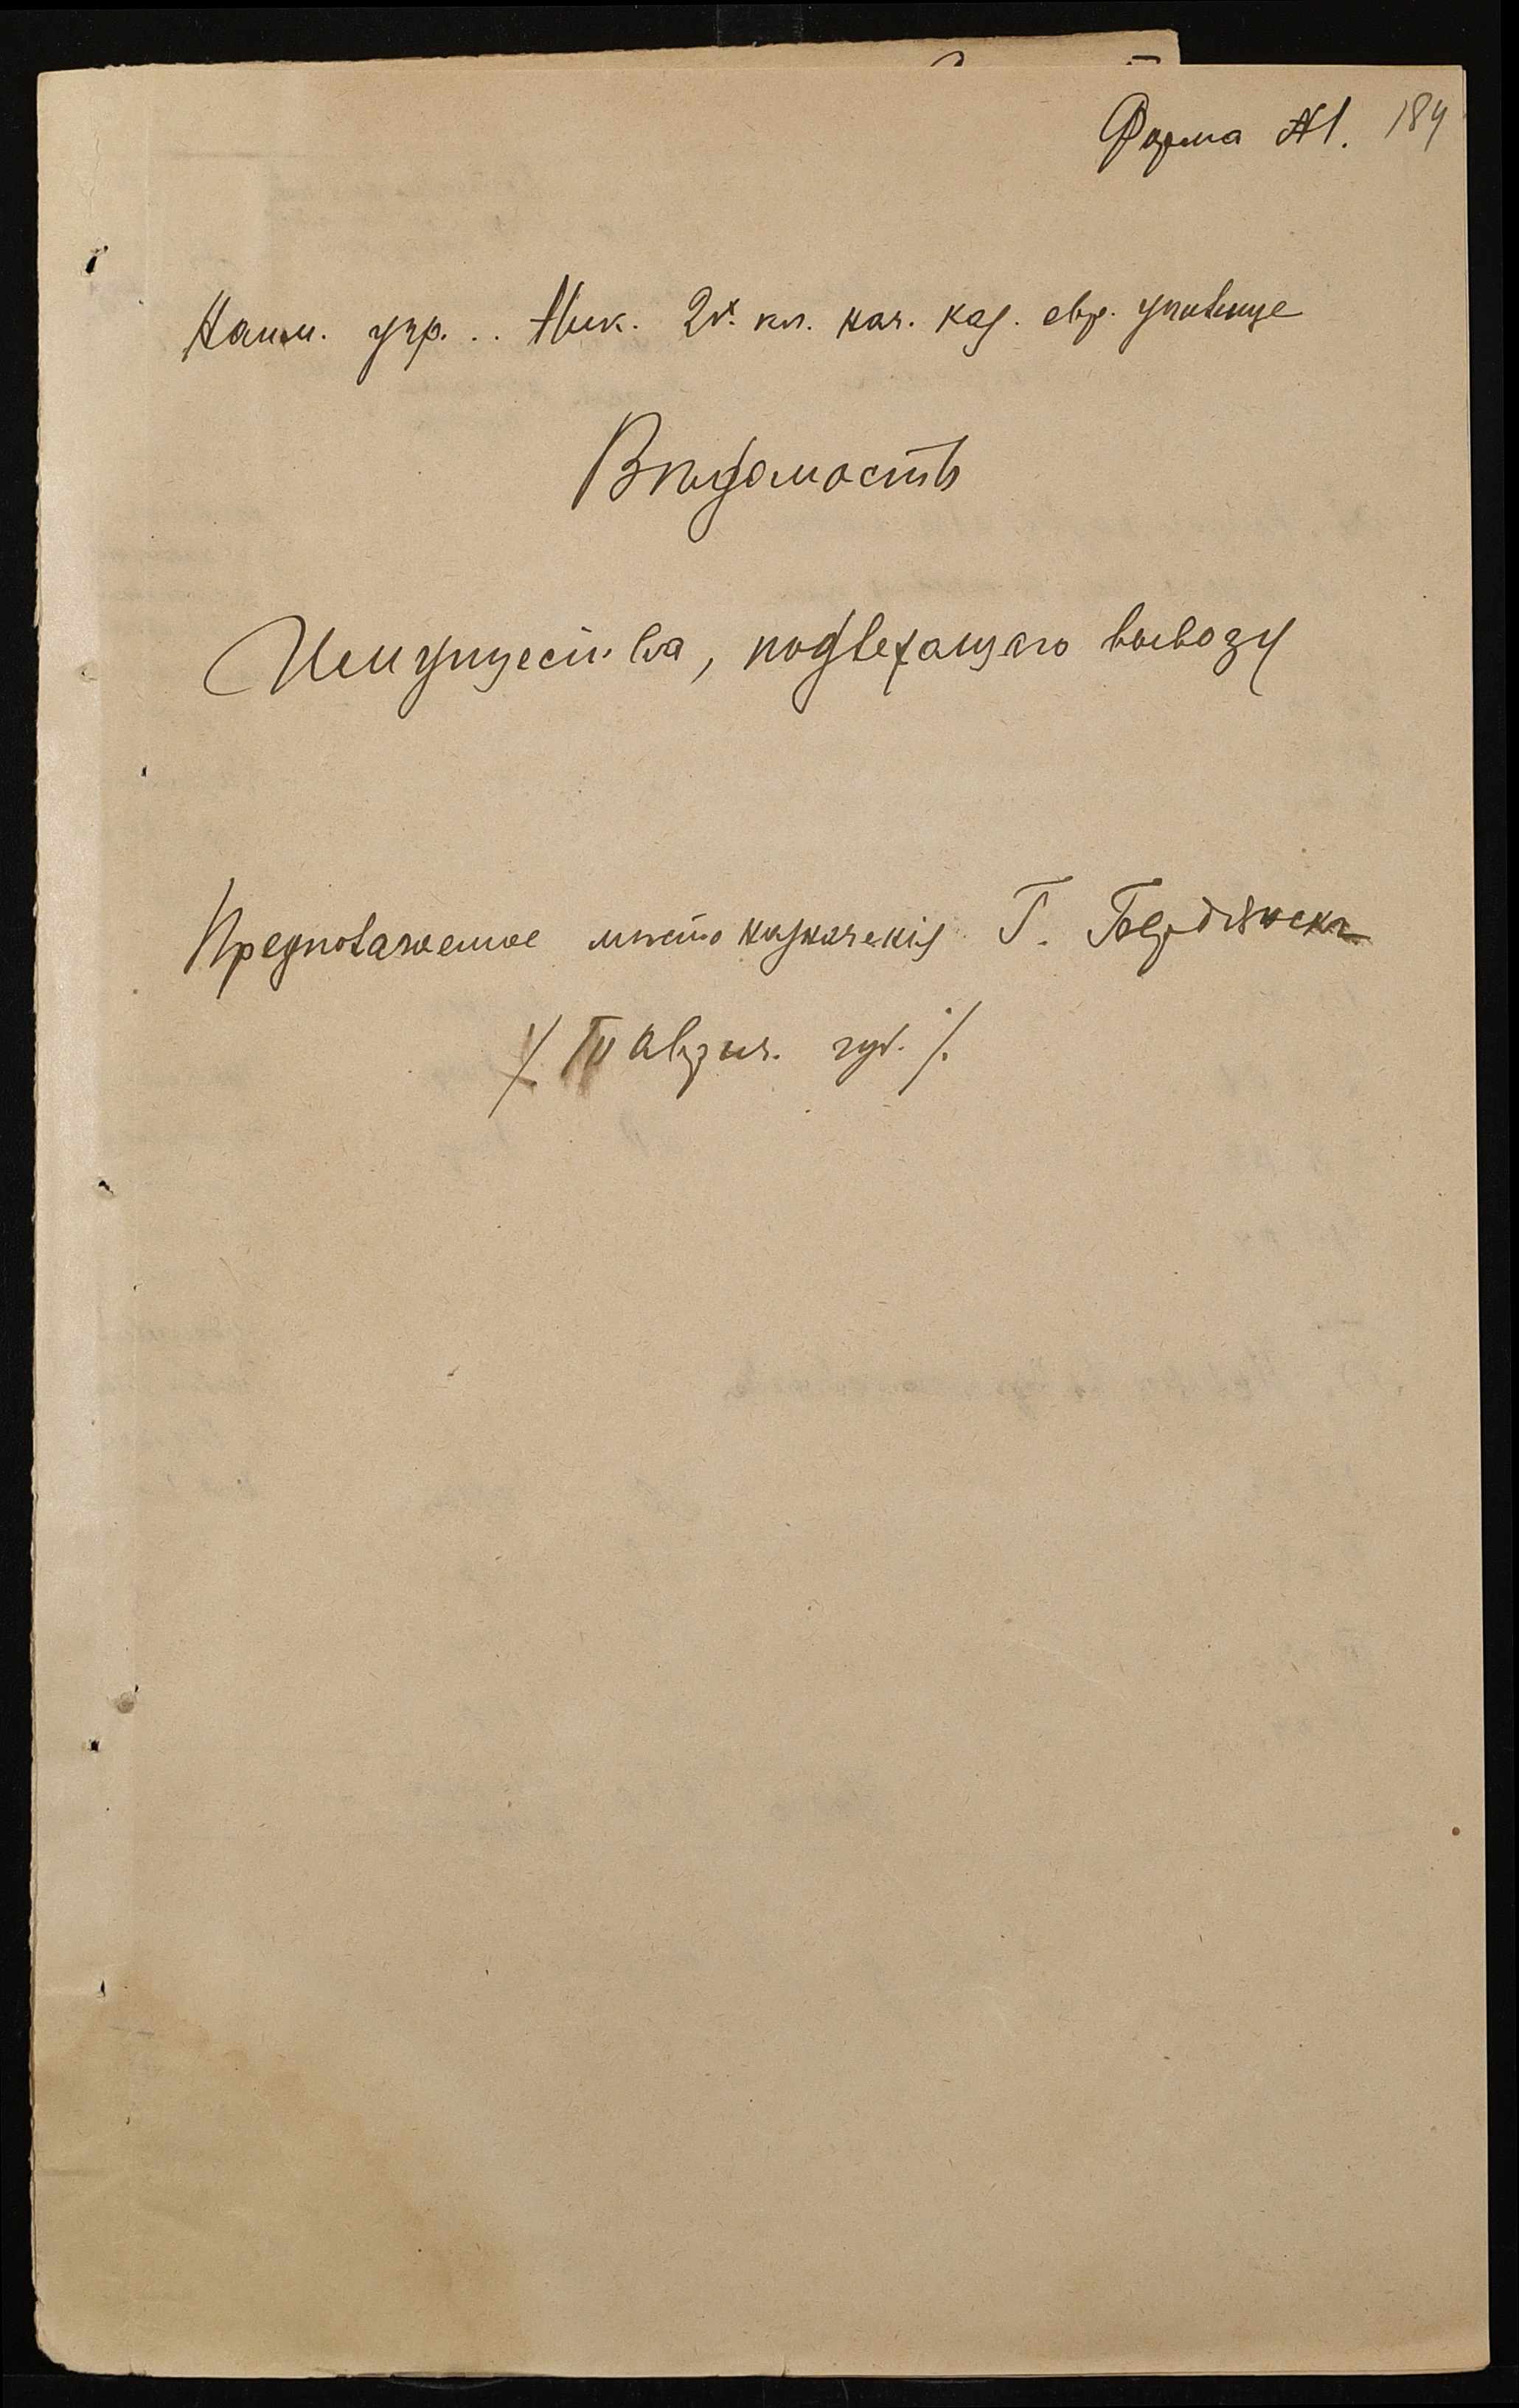 Форма №1. 184
Наим. учр. .. Ник. 2х. кл. нач. каз. евр. училище
Вѣдомость
Имущества, подлежащаго вывозу
Предполагаемое мѣсто назначенія Г. Бердянскъ
/ Таврич. губ. /.